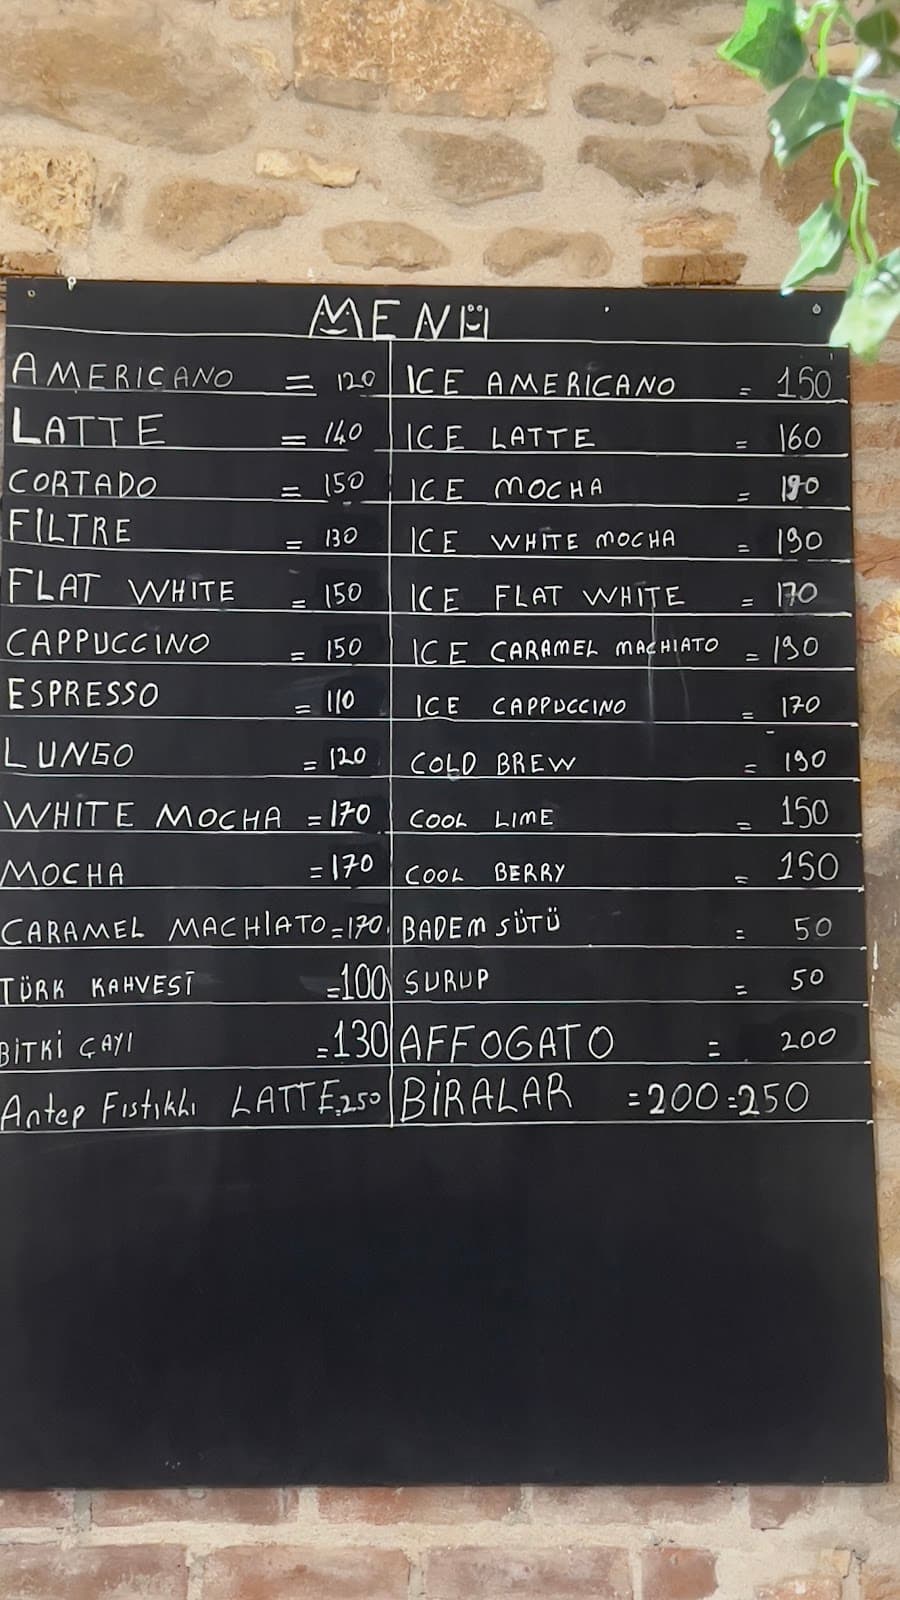 MENÜ
AMERICANO = 120
LATTE = 140
CORTADO = 150
FİLTRE = 130
FLAT WHITE = 150
CAPPUCCINO = 150
ESPRESSO = 110
LUNGO = 120
WHITE MOCHA = 170
MOCHA = 170
CARAMEL MACHİATO = 170
TÜRK KAHVESİ = 100
BİTKİ ÇAYI = 130
Antep Fıstıklı LATTE = 250
ICE AMERICANO = 150
ICE LATTE = 160
ICE MOCHA = 190
ICE WHITE MOCHA = 190
ICE FLAT WHITE = 170
ICE CARAMEL MACHIATO = 190
ICE CAPPUCCINO = 170
COLD BREW = 190
COOL LIME = 150
COOL BERRY = 150
BADEM SÜTÜ = 50
SURUP = 50
AFFOGATO = 200
BİRALAR = 200 = 250